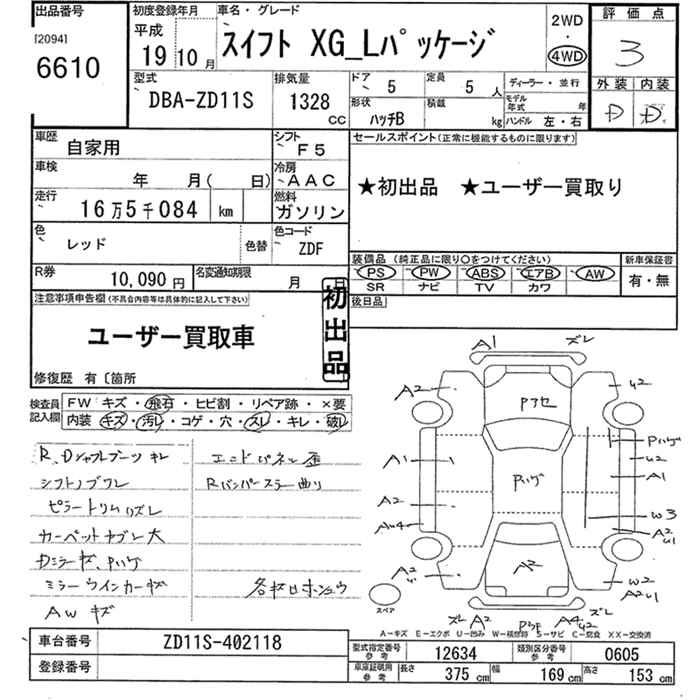 出品番号
[2094]
6610
初度登録年月
平成
19 10月
車名・グレード
スイフト XG_Lパッケージ
2WD
・
4WD
評価点
3
外装 内装
D D
型式
DBA-ZD11S
排気量
1328
CC
ドア
5
定員
5 人
ディーラー・並行
形状
ハッチB
積載
kg
モデル年式 年
ハンドル 左・右
車歴
自家用
シフト
F5
セールスポイント(正常に機能するものに限ります)
車検
年 月( 日)
冷房
AAC
★初出品 ★ユーザー買取り
走行
16万5千084 km
燃料
ガソリン
色
レッド
色替
色コード
ZDF
装備品 (純正品に限り○をつけてください)
新車保証書
PS PW ABS エアB AW
SR ナビ TV カワ
有・無
R券
10,090円
名変通知期限
月 日
後日品
注意事項申告欄(不具合内容等は具体的に記入して下さい)
初出品
ユーザー買取車
修復歴 有〔箇所
検査員記入欄
FW キズ・飛石・ヒビ割・リペア跡・×要
内装 キズ・汚レ・コゲ・穴・スレ・キレ・破レ
R、Dシャフトブーツ キレ
シフトノブワレ
ピラートリムリズレ
カーペットナブレ大
Dミラーキズ、Pハゲ
ミラーウインカーキズ
AW キズ
エンドパネル歪
Rバンパーステー曲リ
A1
ズレ
A2
Pフカセ
U2
Pハゲ
U2
A1
A1
Pハゲ
A2
W3
A2
U1
A2
A2
W2
スペア
ズレ A2
A4
U2
ズレ
A－キズ E－エクボ U－凹み W－補修跡 S－サビ C－腐食 XX－交換済
車台番号
ZD11S-402118
登録番号
型式指定番号
参考
12634
類別区分番号
参考
0605
車庫証明用
参考
長さ
375 cm
幅
169 cm
高さ
153 cm